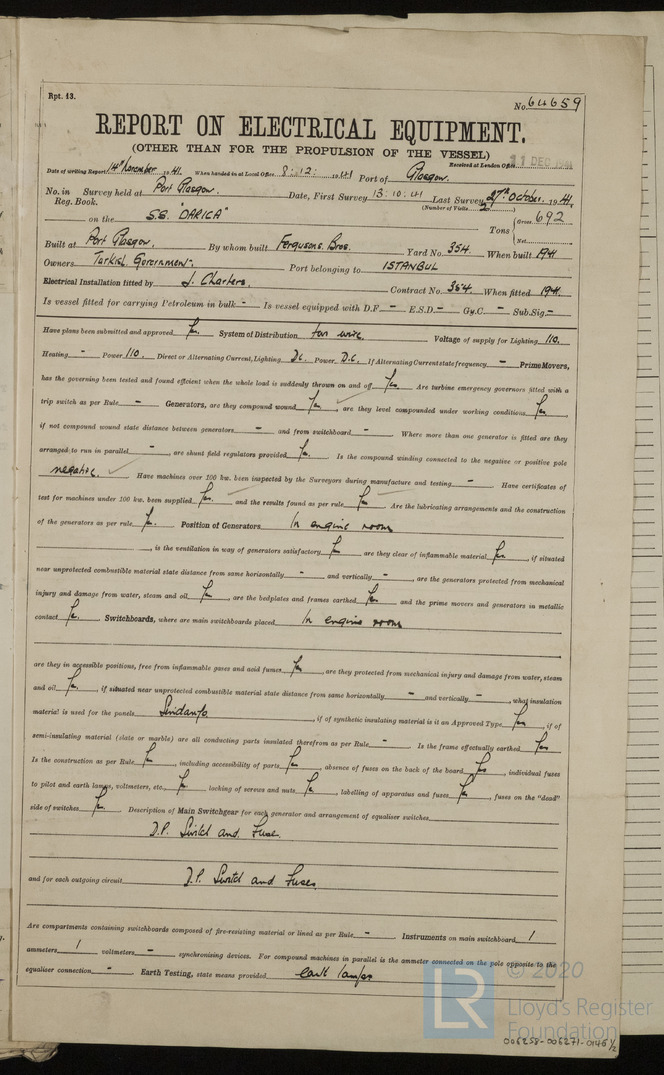 Rpt. 13.
No. 64659
REPORT ON ELECTRICAL EQUIPMENT.
(OTHER THAN FOR THE PROPULSION OF THE VESSEL)
Received at London Office 11 DEC 1941
Date of writing Report 14th November 1941. When handed in at Local Office 8.12.1941 Port of Glasgow.
No. in Survey held at Port Glasgow. Date, First Survey 13.10.41 Last Survey 27th October. 1941.
Reg. Book. (Number of Visits 2)
on the S.S. "DARICA" Tons { Gross 692
Net
Built at Port Glasgow. By whom built Fergusons Bros. Yard No. 354. When built 1941
Owners Turkish Government. Port belonging to ISTANBUL
Electrical Installation fitted by J. Charters. Contract No. 354. When fitted 1941.
Is vessel fitted for carrying Petroleum in bulk - Is vessel equipped with D.F. - E.S.D. - Gy.C. - Sub.Sig. -
Have plans been submitted and approved Yes. System of Distribution two wire. Voltage of supply for Lighting 110.
Heating - Power 110. Direct or Alternating Current, Lighting D.C. Power D.C. If Alternating Current state frequency - Prime Movers,
has the governing been tested and found efficient when the whole load is suddenly thrown on and off Yes. Are turbine emergency governors fitted with a
trip switch as per Rule - Generators, are they compound wound Yes, are they level compounded under working conditions Yes,
if not compound wound state distance between generators - and from switchboard - Where more than one generator is fitted are they
arranged to run in parallel -, are shunt field regulators provided Yes. Is the compound winding connected to the negative or positive pole
negative. Have machines over 100 kw. been inspected by the Surveyors during manufacture and testing - Have certificates of
test for machines under 100 kw. been supplied Yes and the results found as per rule Yes Are the lubricating arrangements and the construction
of the generators as per rule Yes. Position of Generators In engine room
, is the ventilation in way of generators satisfactory Yes are they clear of inflammable material Yes, if situated
near unprotected combustible material state distance from same horizontally - and vertically -, are the generators protected from mechanical
injury and damage from water, steam and oil Yes, are the bedplates and frames earthed Yes and the prime movers and generators in metallic
contact Yes. Switchboards, where are main switchboards placed In engine room
are they in accessible positions, free from inflammable gases and acid fumes Yes, are they protected from mechanical injury and damage from water, steam
and oil Yes, if situated near unprotected combustible material state distance from same horizontally - and vertically -, what insulation
material is used for the panels Sindanyo, if of synthetic insulating material is it an Approved Type Yes, if of
semi-insulating material (slate or marble) are all conducting parts insulated therefrom as per Rule - Is the frame effectually earthed Yes
Is the construction as per Rule Yes, including accessibility of parts Yes, absence of fuses on the back of the board Yes, individual fuses
to pilot and earth lamps, voltmeters, etc. Yes locking of screws and nuts Yes, labelling of apparatus and fuses Yes, fuses on the "dead"
side of switches Yes. Description of Main Switchgear for each generator and arrangement of equaliser switches
D.P. Switch and Fuse.
and for each outgoing circuit D.P. Switch and Fuses.
Are compartments containing switchboards composed of fire-resisting material or lined as per Rule - Instruments on main switchboard 1
ammeters 1 voltmeters - synchronising devices. For compound machines in parallel is the ammeter connected on the pole opposite to the
equaliser connection - Earth Testing, state means provided earth lamps
LR © 2020
Lloyd's Register
Foundation
006258-006271-0146 1/2